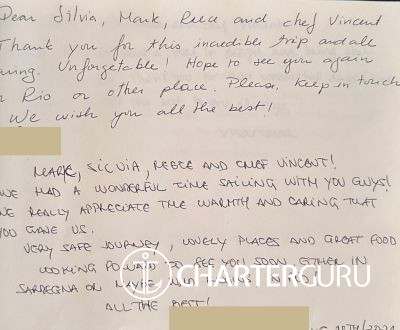 Dear Silvia, Mark, Reece and chef Vincent
Thank you for this incredible trip and all
Unforgetable! Hope to see you again
Rio or other place. Please, keep in touch
We wish you all the best!
MARK, SILVIA, REECE AND CHEF VINCENT!
WE HAD A WONDERFUL TIME SAILING WITH YOU GUYS!
WE REALLY APPRECIATE THE WARMTH AND CARING THAT
YOU GAVE US.
VERY SAFE JOURNEY, LOVELY PLACES AND GREAT FOOD
LOOKING FOWARD TO SEE YOU SOON, EITHER IN
SARDEGNA OR MAYBE
CHARTERGURU
ALL THE BEST!